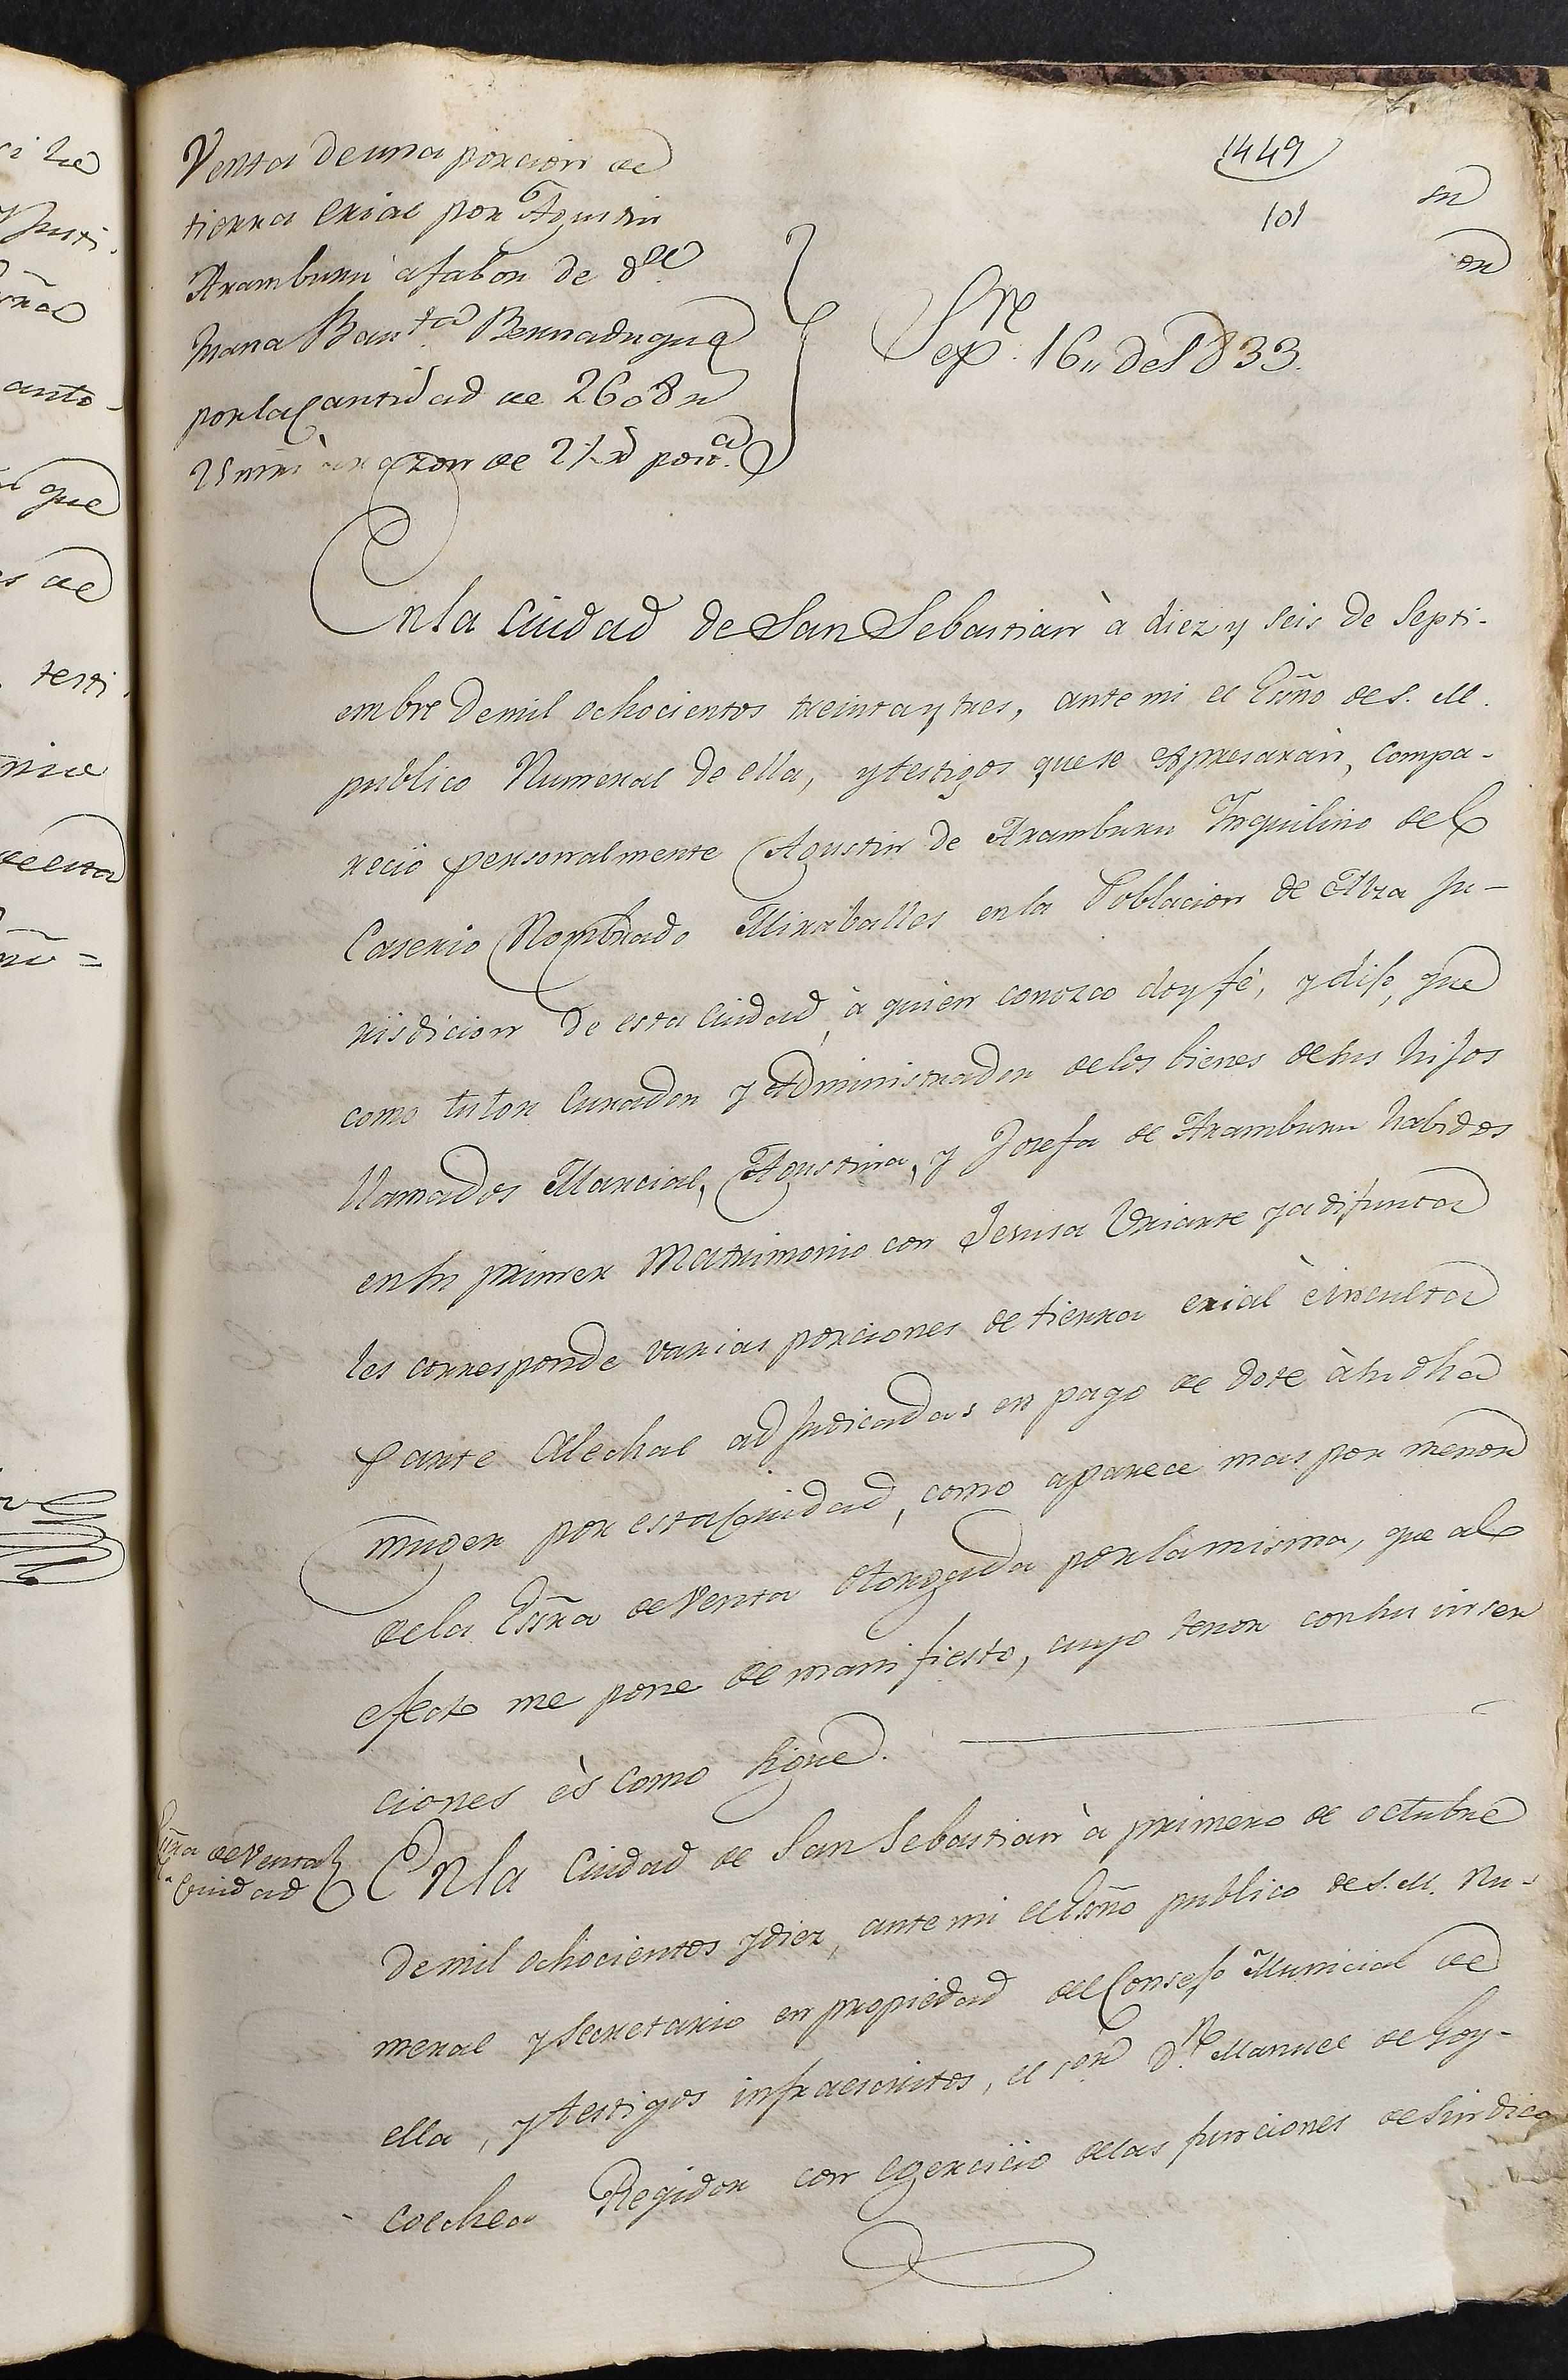 1449
101
Venta de una porcion de
tierra erial por Agustin
Aramburu à fabor de d.ª
Juana Bau.ta Bermadugue
por la Cantidad de 2608 rs
à razon de
Sre
Sep. 16,, de 1833.
En la Ciudad de San Sebastian à diez y seis de Septi-
embre de mil ochocientos treinta y tres, ante mi el Esño de S. M.
publico Numeral de ella, y testigos que se espresaràn, compa-
reciò personalmente Agustin de Aramburu Inquilino del
Caserio Nombrado Miraballes en la Poblacion de Alza Ju-
risdicion de esta Ciudad, à quien conozco doy fè, y dijo, que
como tutor Curador y Administrador de los bienes de sus hijos
llamados Marcial, Agustina, y Josefa de Aramburu habidos
en su primer Matrimonio con Jesusa Uriarte ya difunta
les corresponde varias porciones de tierra erial è inculta
parte Alechal adjudicadas en pago de dote à su dha
muger por esta Ciudad, como aparece mas por menor
de la Esñra de Venta otorgada por la misma, que al
efecto me pone de manifiesto, cuyo tenor con su inser
ciones ès como sigue.
Esñra de Venta
Ciudad
En la Ciudad de San Sebastian à primero de octubre
de mil ochocientos y diez, ante mi el Esño publico de S. M. Nu-
meral y Secretario en propiedad del Consejo Municial de
ella, y testigos infraescritos, el Sor Dn Manuel de Goy-
coechea Regidor con egercicio de las funciones de Sindico